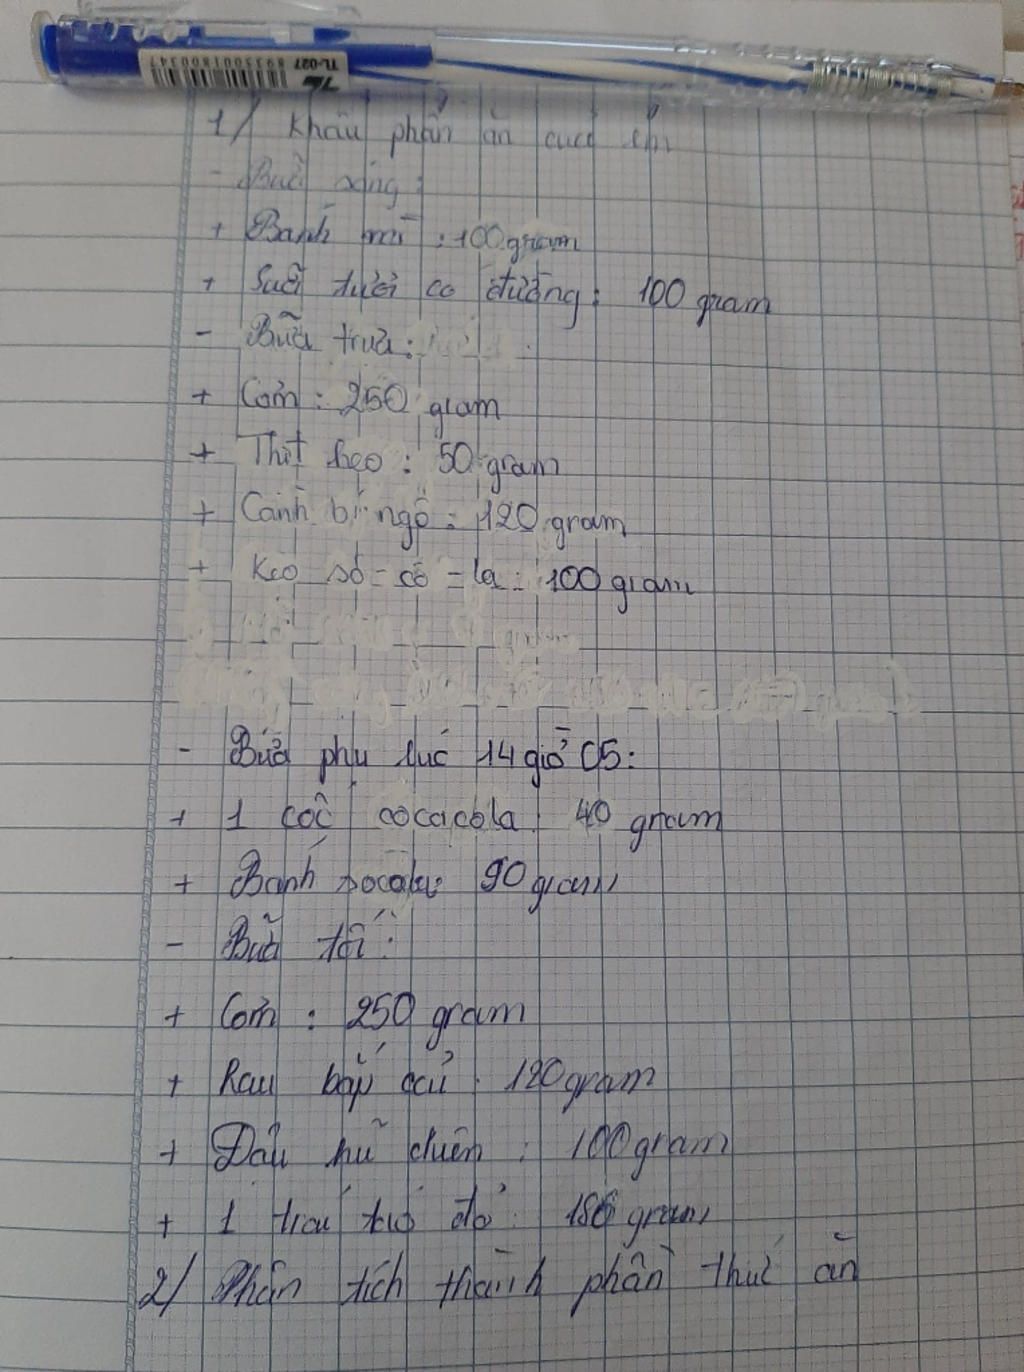 TL-027
8935001800347
1/ Khẩu phần ăn của em
- Buổi sáng:
+ Bánh mì : 100 gram
+ Sữa tươi có đường: 100 gram
- Bữa trưa:
+ Cơm : 250 gram
+ Thịt heo : 50 gram
+ Canh bí ngô : 120 gram
+ Kẹo sô-cô-la: 100 gram
- Bữa phụ lúc 14 giờ 05:
+ 1 cốc cocacola: 40 gram
+ Bánh socola: 90 gram
- Bữa tối:
+ Cơm : 250 gram
+ Rau bắp cải : 120 gram
+ Đậu hũ chiên : 100 gram
+ 1 trái táo đỏ : gram
2/ Phân tích thành phần thức ăn